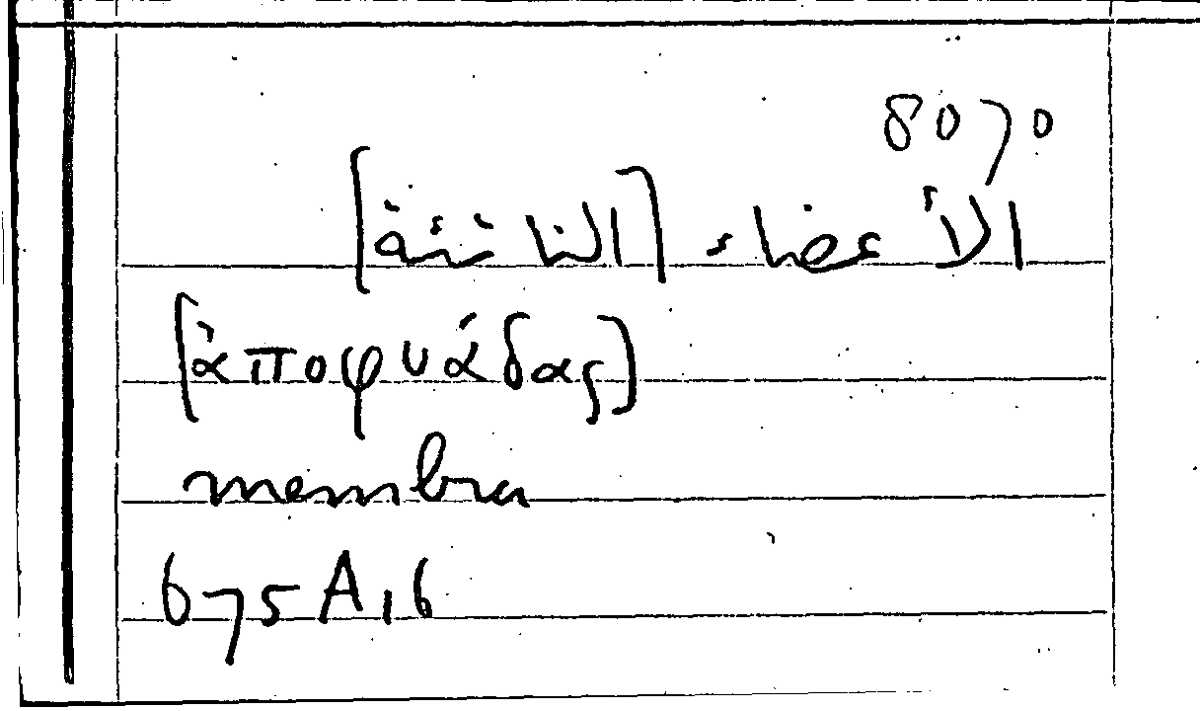 8070
الأعضاء [الناتئة]
[ἀποφυάδας]
membra
675A16